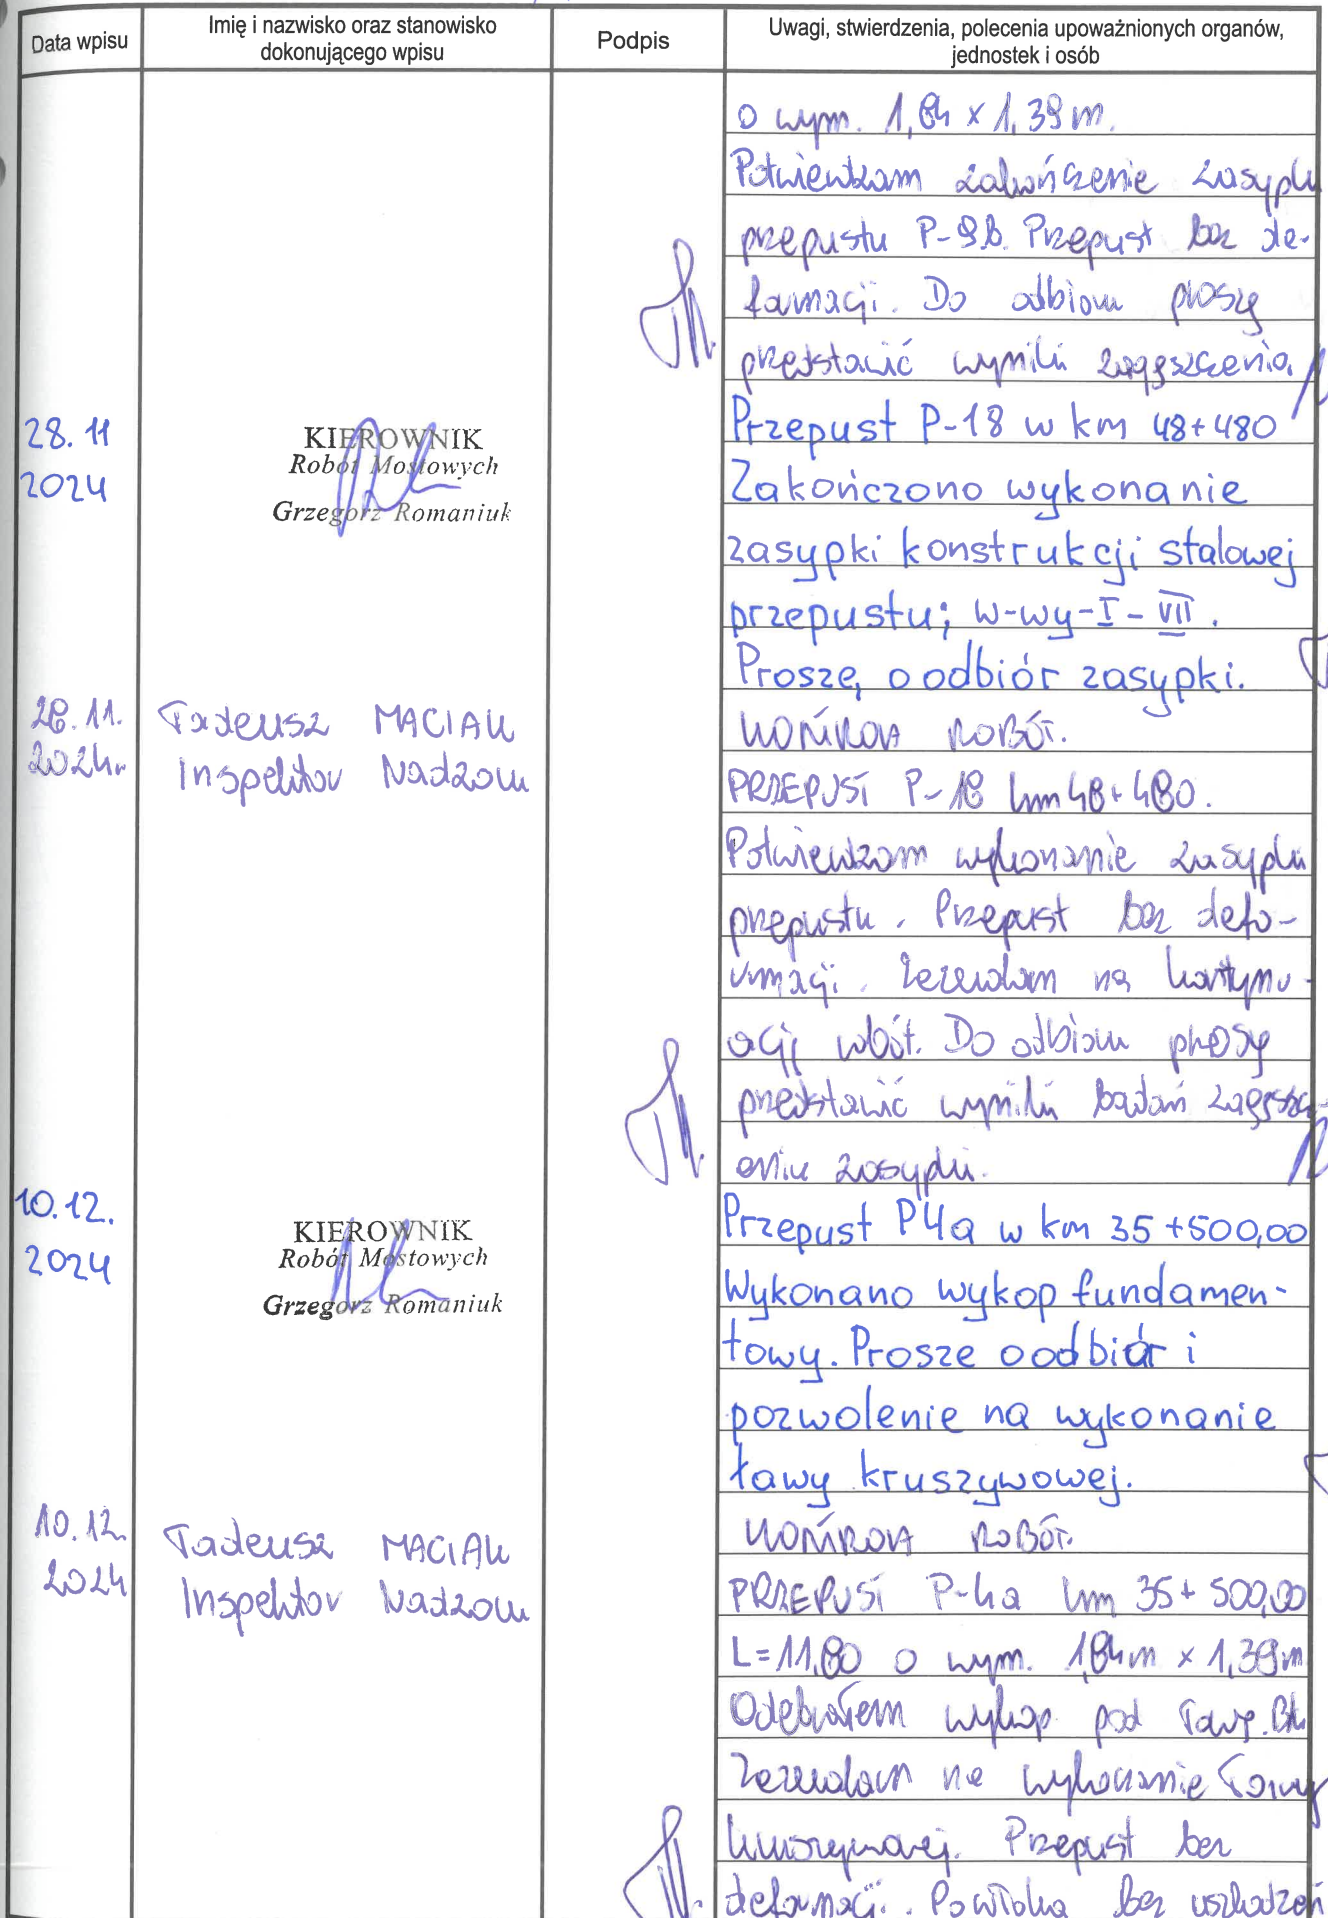 Data wpisu
Imię i nazwisko oraz stanowisko
dokonującego wpisu
Podpis
Uwagi, stwierdzenia, polecenia upoważnionych organów,
jednostek i osób
o wym. 1,84 x 1,39 m.
Potwierdzam zakończenie zasypki
przepustu P-9b. Przepust bez de-
formacji. Do odbioru proszę
przedstawić wyniki zagęszczenia.
28. 11
2024
KIEROWNIK
Robót Mostowych
Grzegorz Romaniuk
Przepust P-18 w km 48+480
Zakończono wykonanie
zasypki konstrukcji stalowej
przepustu; w-wy-I-VII.
Proszę o odbiór zasypki.
28.11.
2024r
Tadeusz MACIAK
Inspektor Nadzoru
KONTROLA ROBÓT.
PRZEPUST P-18 km 48+480.
Potwierdzam wykonanie zasypki
przepustu. Przepust bez defo-
rmacji. Zezwalam na kontynu-
ację robót. Do odbioru proszę
przedstawić wyniki badań zagęszcz-
enia zasypki.
10.12.
2024
KIEROWNIK
Robót Mostowych
Grzegorz Romaniuk
Przepust P4a w km 35+500,00
Wykonano wykop fundamen-
towy. Prosze o odbiór i
pozwolenie na wykonanie
ławy kruszywowej.
10.12.
2024
Tadeusz MACIAK
Inspektor Nadzoru
KONTROLA ROBÓT.
PRZEPUST P-4a km 35+500,00
L=11,80 o wym. 1,84m x 1,39m
Odebrałem wykop pod ławę.
Zezwalam na wykonanie ławy
kruszywowej. Przepust bez
deformacji. Powłoka bez uszkodzeń